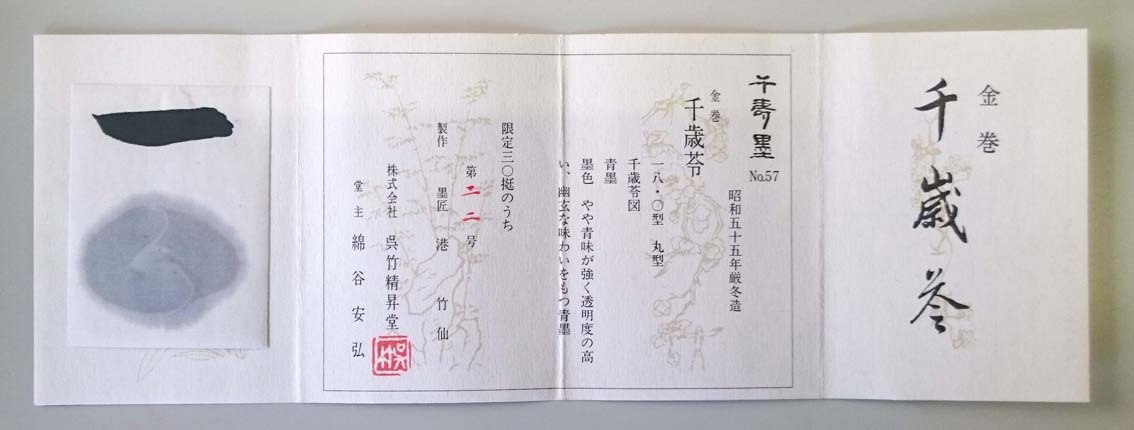 金巻
千歳苓
千寿墨
No.57
昭和五十五年厳冬造
金巻
千歳苓
一八・〇型 丸型
千歳苓図
青墨
墨色 やや青味が強く透明度の高
い、幽玄な味わいをもつ青墨
限定三〇挺のうち
第二二号
製作 墨匠 港 竹仙
株式会社 呉竹精昇堂
堂主 綿谷安弘
呉竹